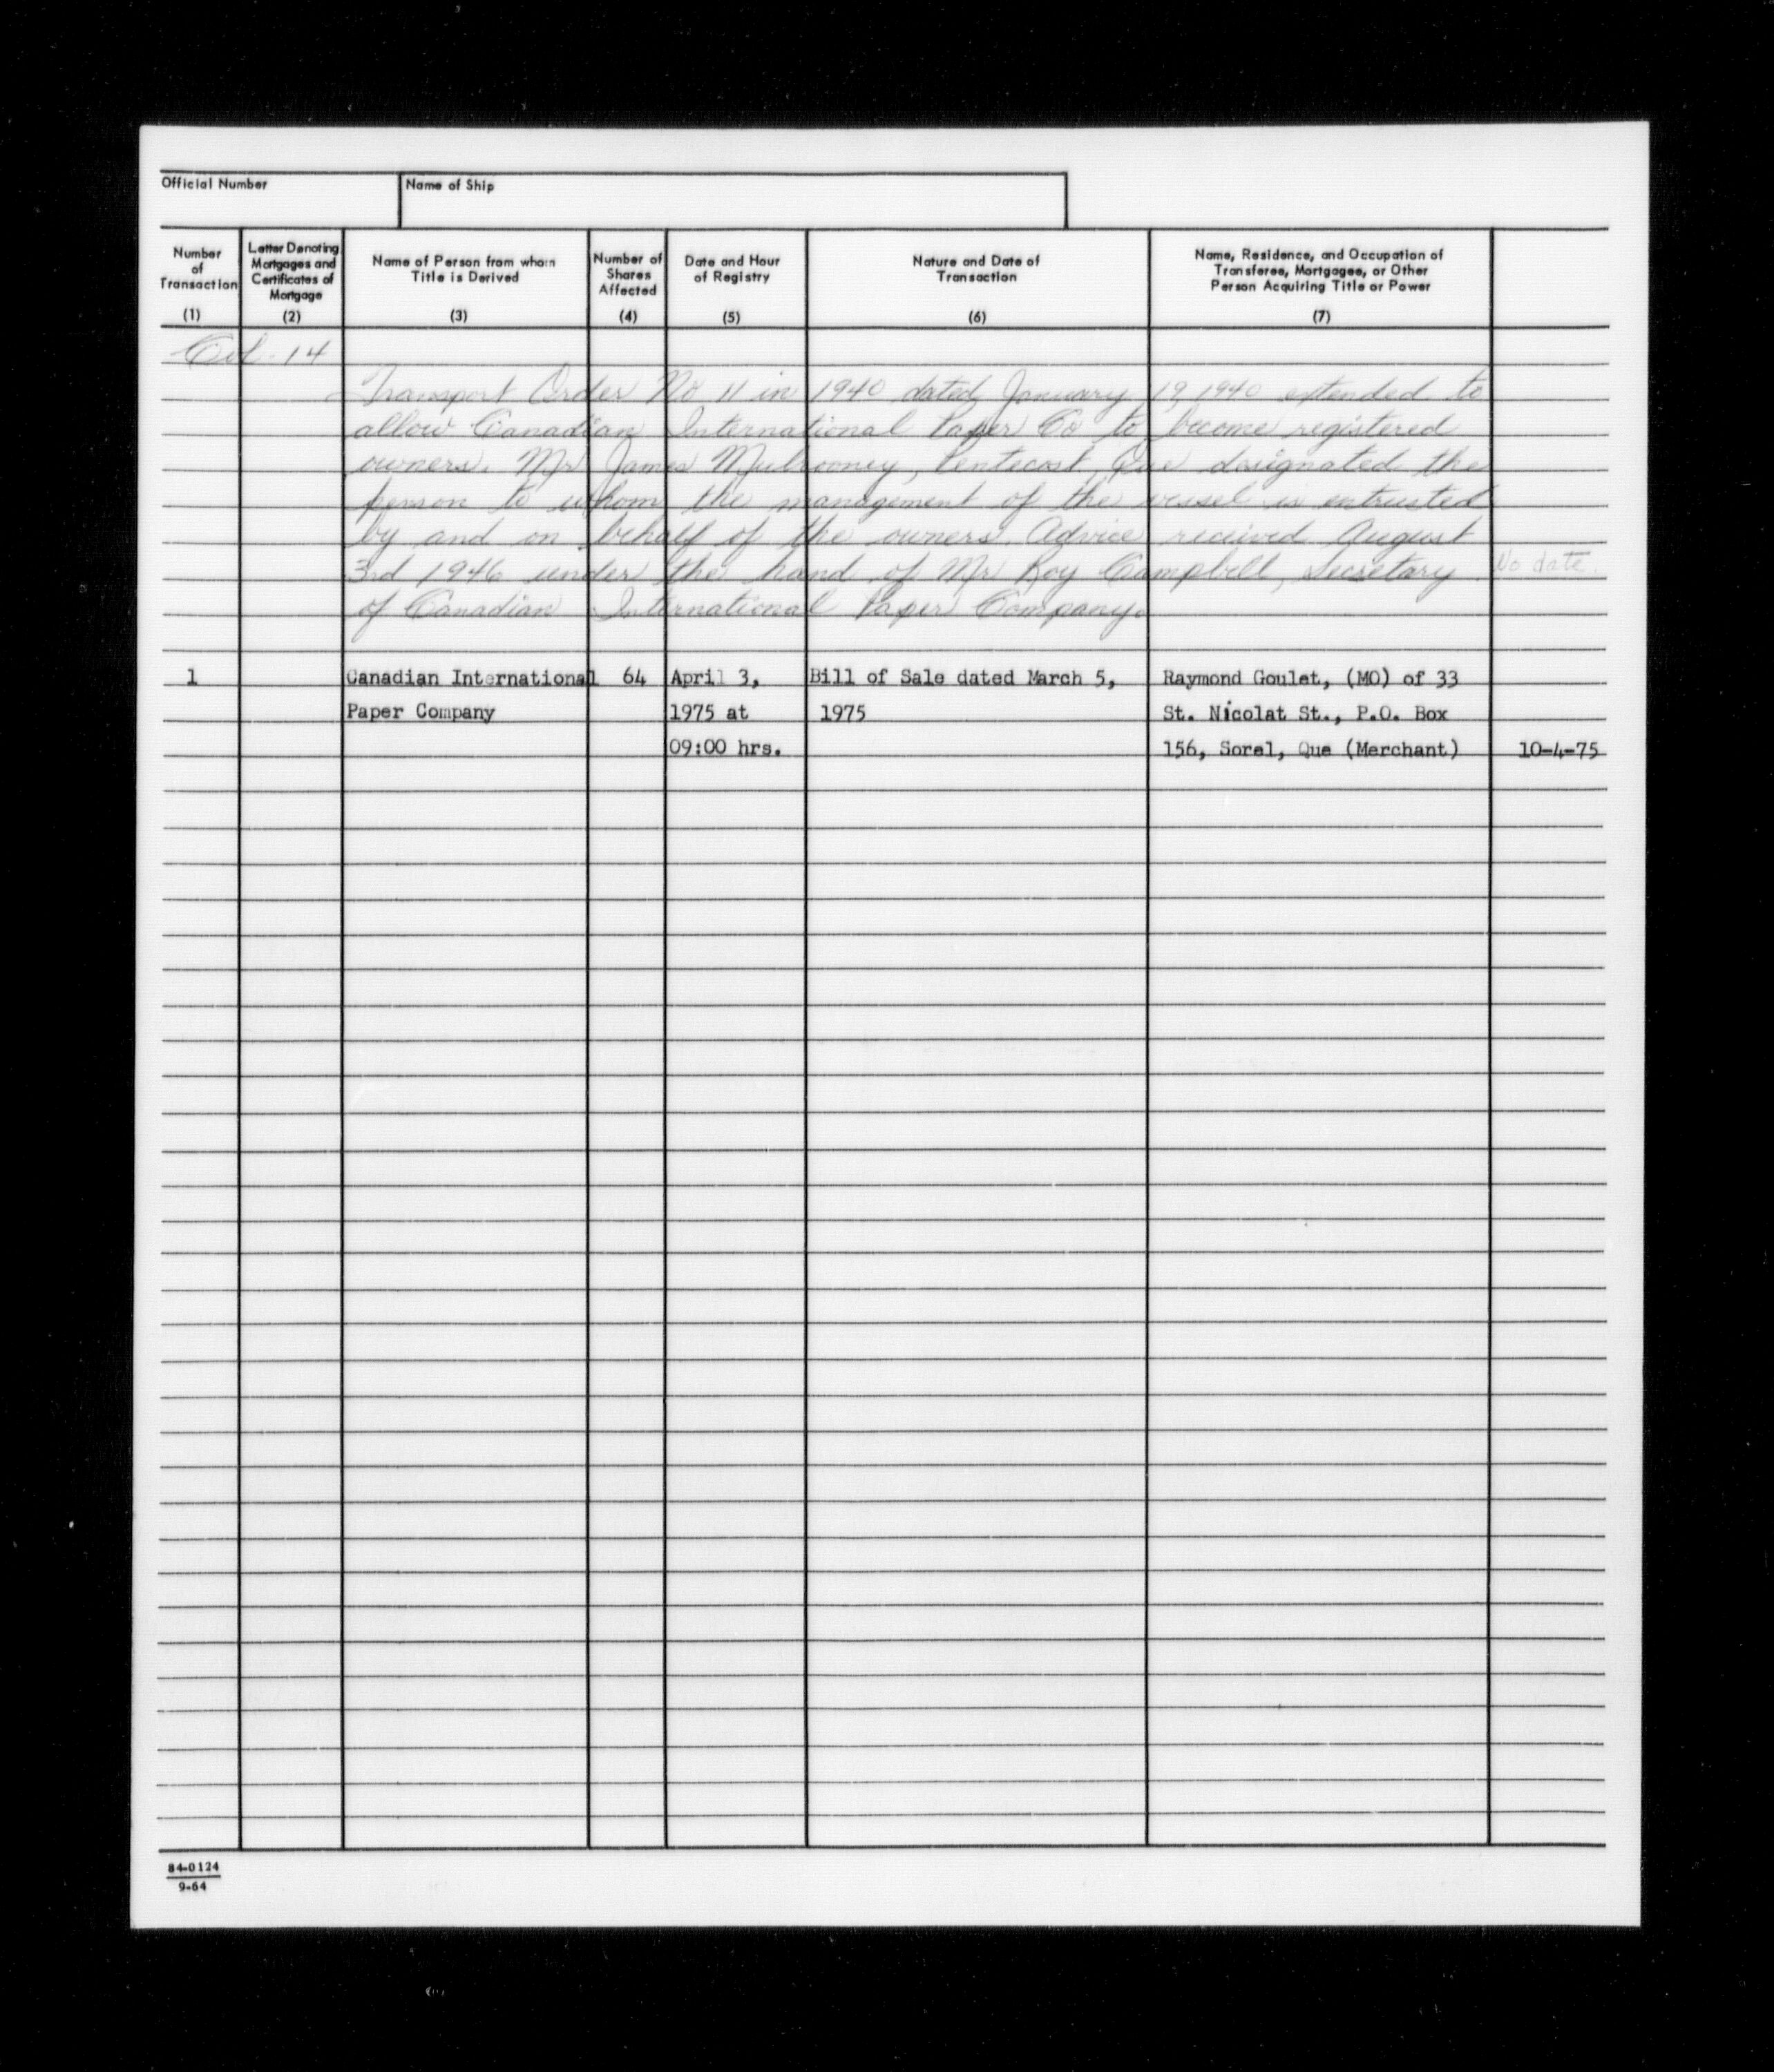 Official Number
Name of Ship
Number of Transaction (1)
Letter Denoting Mortgages and Certificates of Mortgage (2)
Name of Person from whom Title is Derived (3)
Number of Shares Affected (4)
Date and Hour of Registry (5)
Nature and Date of Transaction (6)
Name, Residence, and Occupation of Transferee, Mortgagee, or Other Person Acquiring Title or Power (7)
Col. 14
Transport Order No 11 in 1940 dated January 19, 1940 extended to
allow Canadian International Paper Co to become registered
owners. Mr James Mulrooney, Pentecost, Que designated the
person to whom the management of the vessel is entrusted
by and on behalf of the owners. Advice received August
3rd 1946 under the hand of Mr Roy Campbell, Secretary No date.
of Canadian International Paper Company.
1 Canadian International 64 April 3, Bill of Sale dated March 5, Raymond Goulet, (MO) of 33
Paper Company 1975 at 1975 St. Nicolat St., P.O. Box
09:00 hrs. 156, Sorel, Que (Merchant) 10-4-75
84-0124
9-64